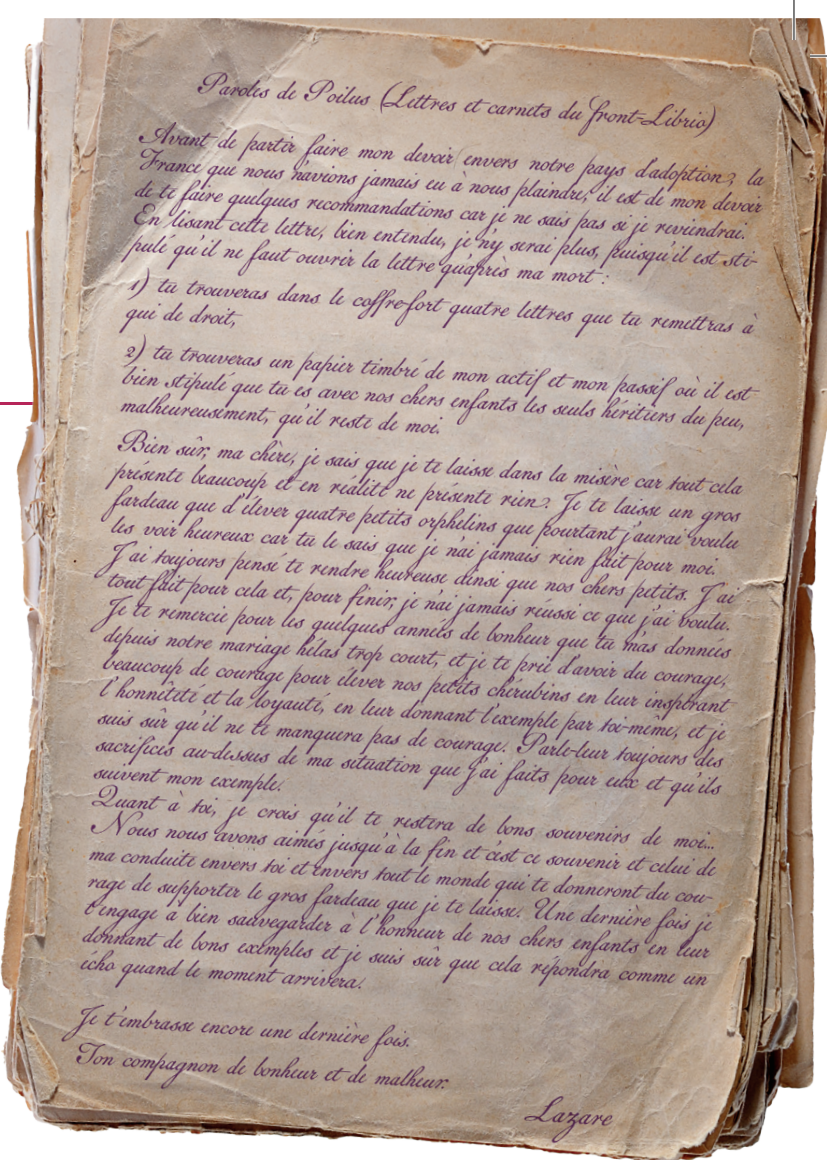 Paroles de Poilus (Lettres et carnets du front-Librio)
Avant de partir faire mon devoir envers notre pays d'adoption, la
France que nous n'avions jamais eu à nous plaindre, il est de mon devoir
de te faire quelques recommandations car je ne sais pas si je reviendrai.
En lisant cette lettre, bien entendu, je n'y serai plus, puisqu'il est sti-
pulé qu'il ne faut ouvrir la lettre qu'après ma mort :
1) tu trouveras dans le coffre-fort quatre lettres que tu remettras à
qui de droit,
2) tu trouveras un papier timbré de mon actif et mon passif où il est
bien stipulé que tu es avec nos chers enfants les seuls héritiers du peu,
malheureusement, qu'il reste de moi.
Bien sûr, ma chère, je sais que je te laisse dans la misère car tout cela
présente beaucoup et en réalité ne présente rien. Je te laisse un gros
fardeau que d'élever quatre petits orphelins que pourtant j'aurai voulu
les voir heureux car tu le sais que je n'ai jamais rien fait pour moi.
J'ai toujours pensé te rendre heureuse ainsi que nos chers petits. J'ai
tout fait pour cela et, pour finir, je n'ai jamais réussi ce que j'ai voulu.
Je te remercie pour les quelques années de bonheur que tu m'as données
depuis notre mariage hélas trop court, et je te prie d'avoir du courage,
beaucoup de courage pour élever nos petits chérubins en leur inspirant
l'honnêteté et la loyauté, en leur donnant l'exemple par toi-même, et je
suis sûr qu'il ne te manquera pas de courage. Parle-leur toujours des
sacrifices au-dessus de ma situation que j'ai faits pour eux et qu'ils
suivent mon exemple.
Quant à toi, je crois qu'il te restera de bons souvenirs de moi...
Nous nous avons aimés jusqu'à la fin et c'est ce souvenir et celui de
ma conduite envers toi et envers tout le monde qui te donneront du cou-
rage de supporter le gros fardeau que je te laisse. Une dernière fois je
t'engage à bien sauvegarder à l'honneur de nos chers enfants en leur
donnant de bons exemples et je suis sûr que cela répondra comme un
écho quand le moment arrivera.
Je t'embrasse encore une dernière fois.
Ton compagnon de bonheur et de malheur.
Lazare